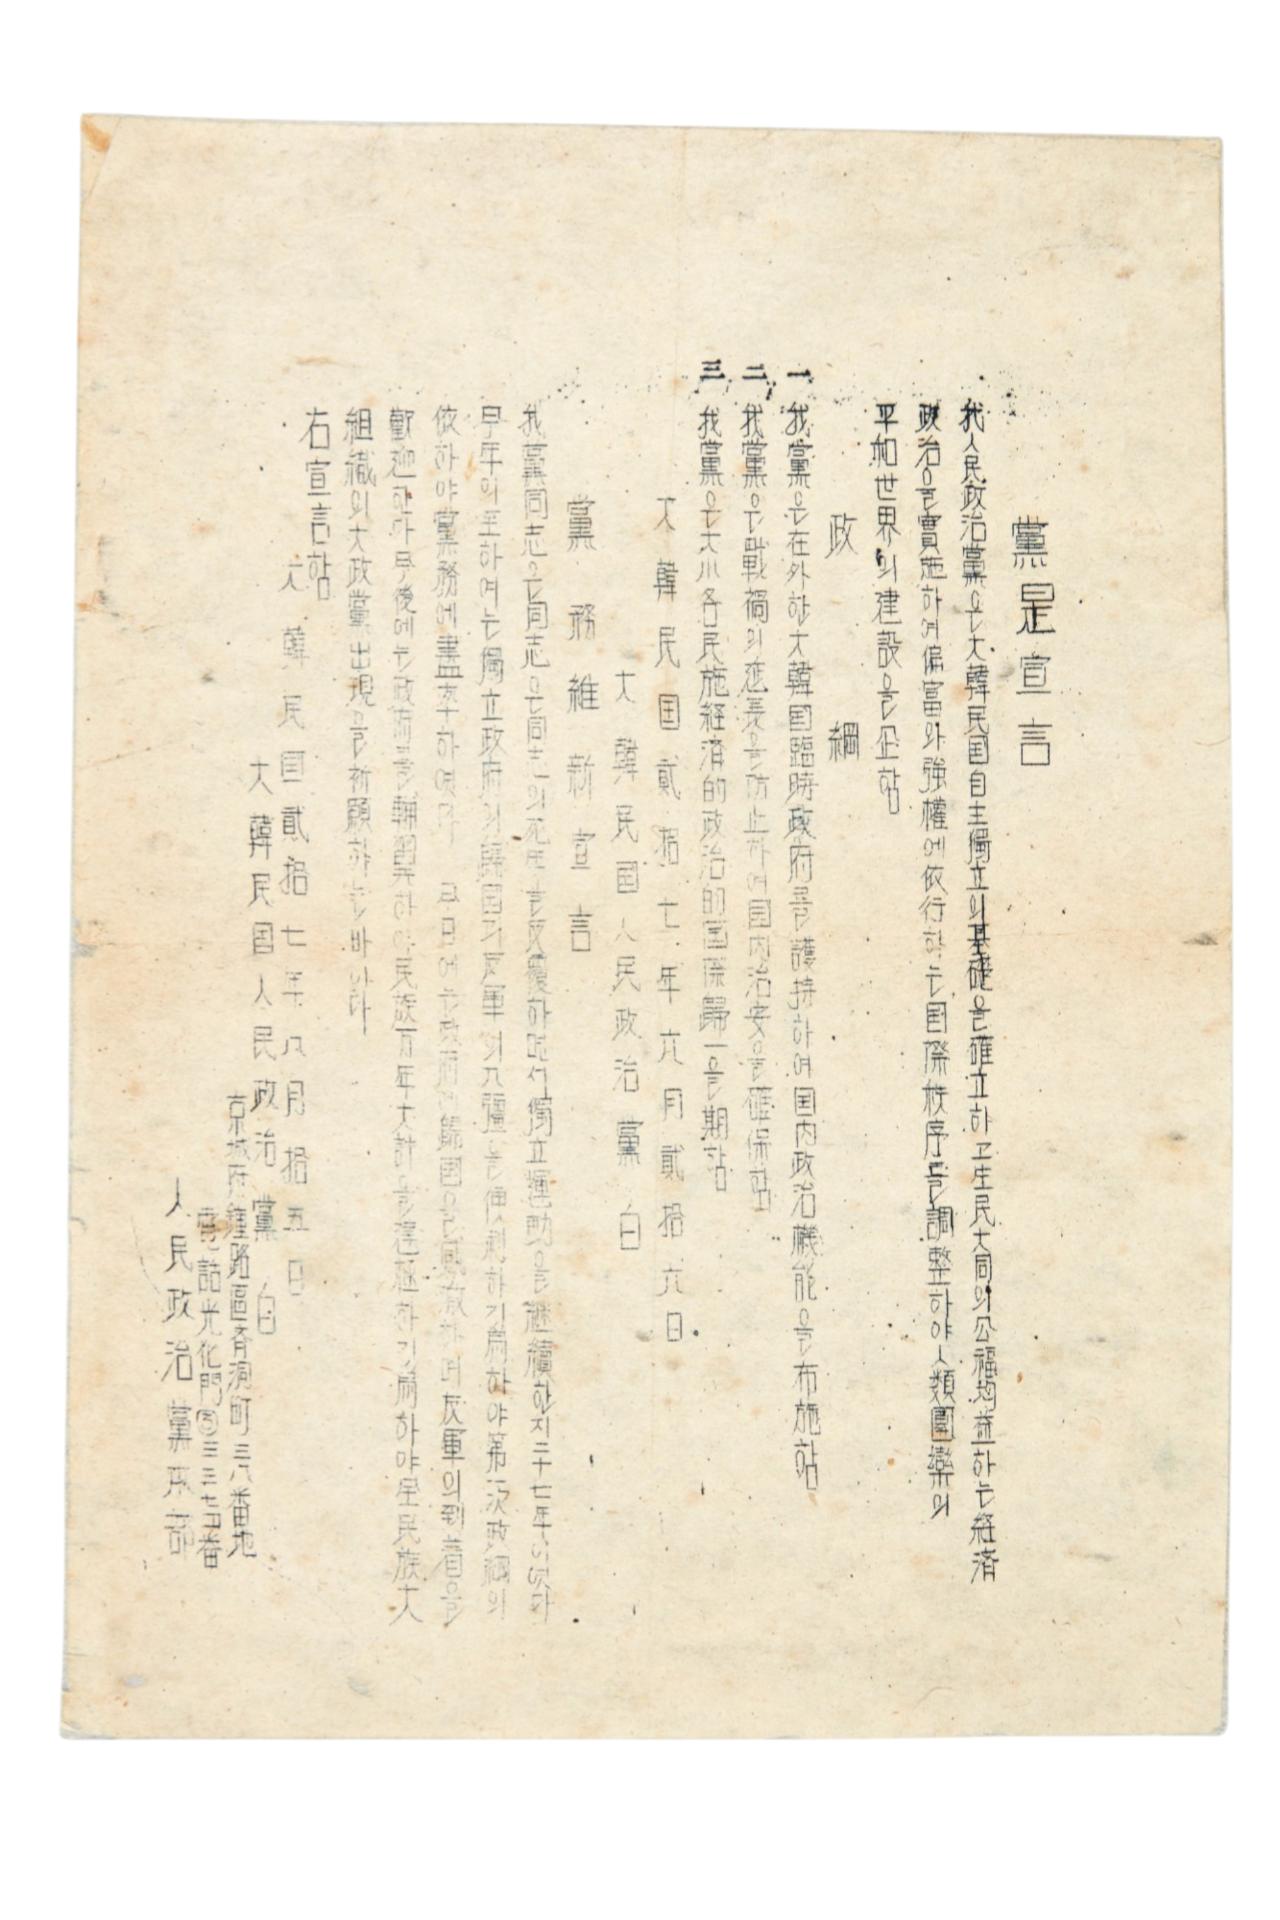 黨是宣言
我人民政治黨은大韓民国自主獨立의基礎을確立하고生民大同의公福均益하는経済
政治을實施하여偏富와強權에依行하는国際秩序를調整하야人類團欒의
平和世界의建設을企함
政綱
一 我黨은在外하大韓国臨時政府를護持하여国内政治機能을布施함
二 我黨은戰禍의延長을防止하여国内治安을確保함
三 我黨은大小各民施経済的政治的国際歸一을期함
大韓民国貳拾七年六月貳拾六日
大韓民国人民政治黨白
黨務維新宣言
我黨同志은同志은同志의死生을反覆하면서獨立運動을継續한지二十七年이잇다
早年의至하여는獨立政府의歸国外軍의入彊을便利하기爲하야第一次政綱의
依하야黨務에盡卒하엿다 今日에는政府에歸国을感激하며友軍의到着을
歡迎한다今後에는政府를輔翼하야民族百年大計을達極하기爲하야全民族大
組織의大政黨出現을祈願하는바이라
右宣言함
大韓民国貳拾七年八月拾五日
大韓民国人民政治黨白
京城府鍾路區斉洞町三八番地
電話光化門③三三七番
人民政治黨本部